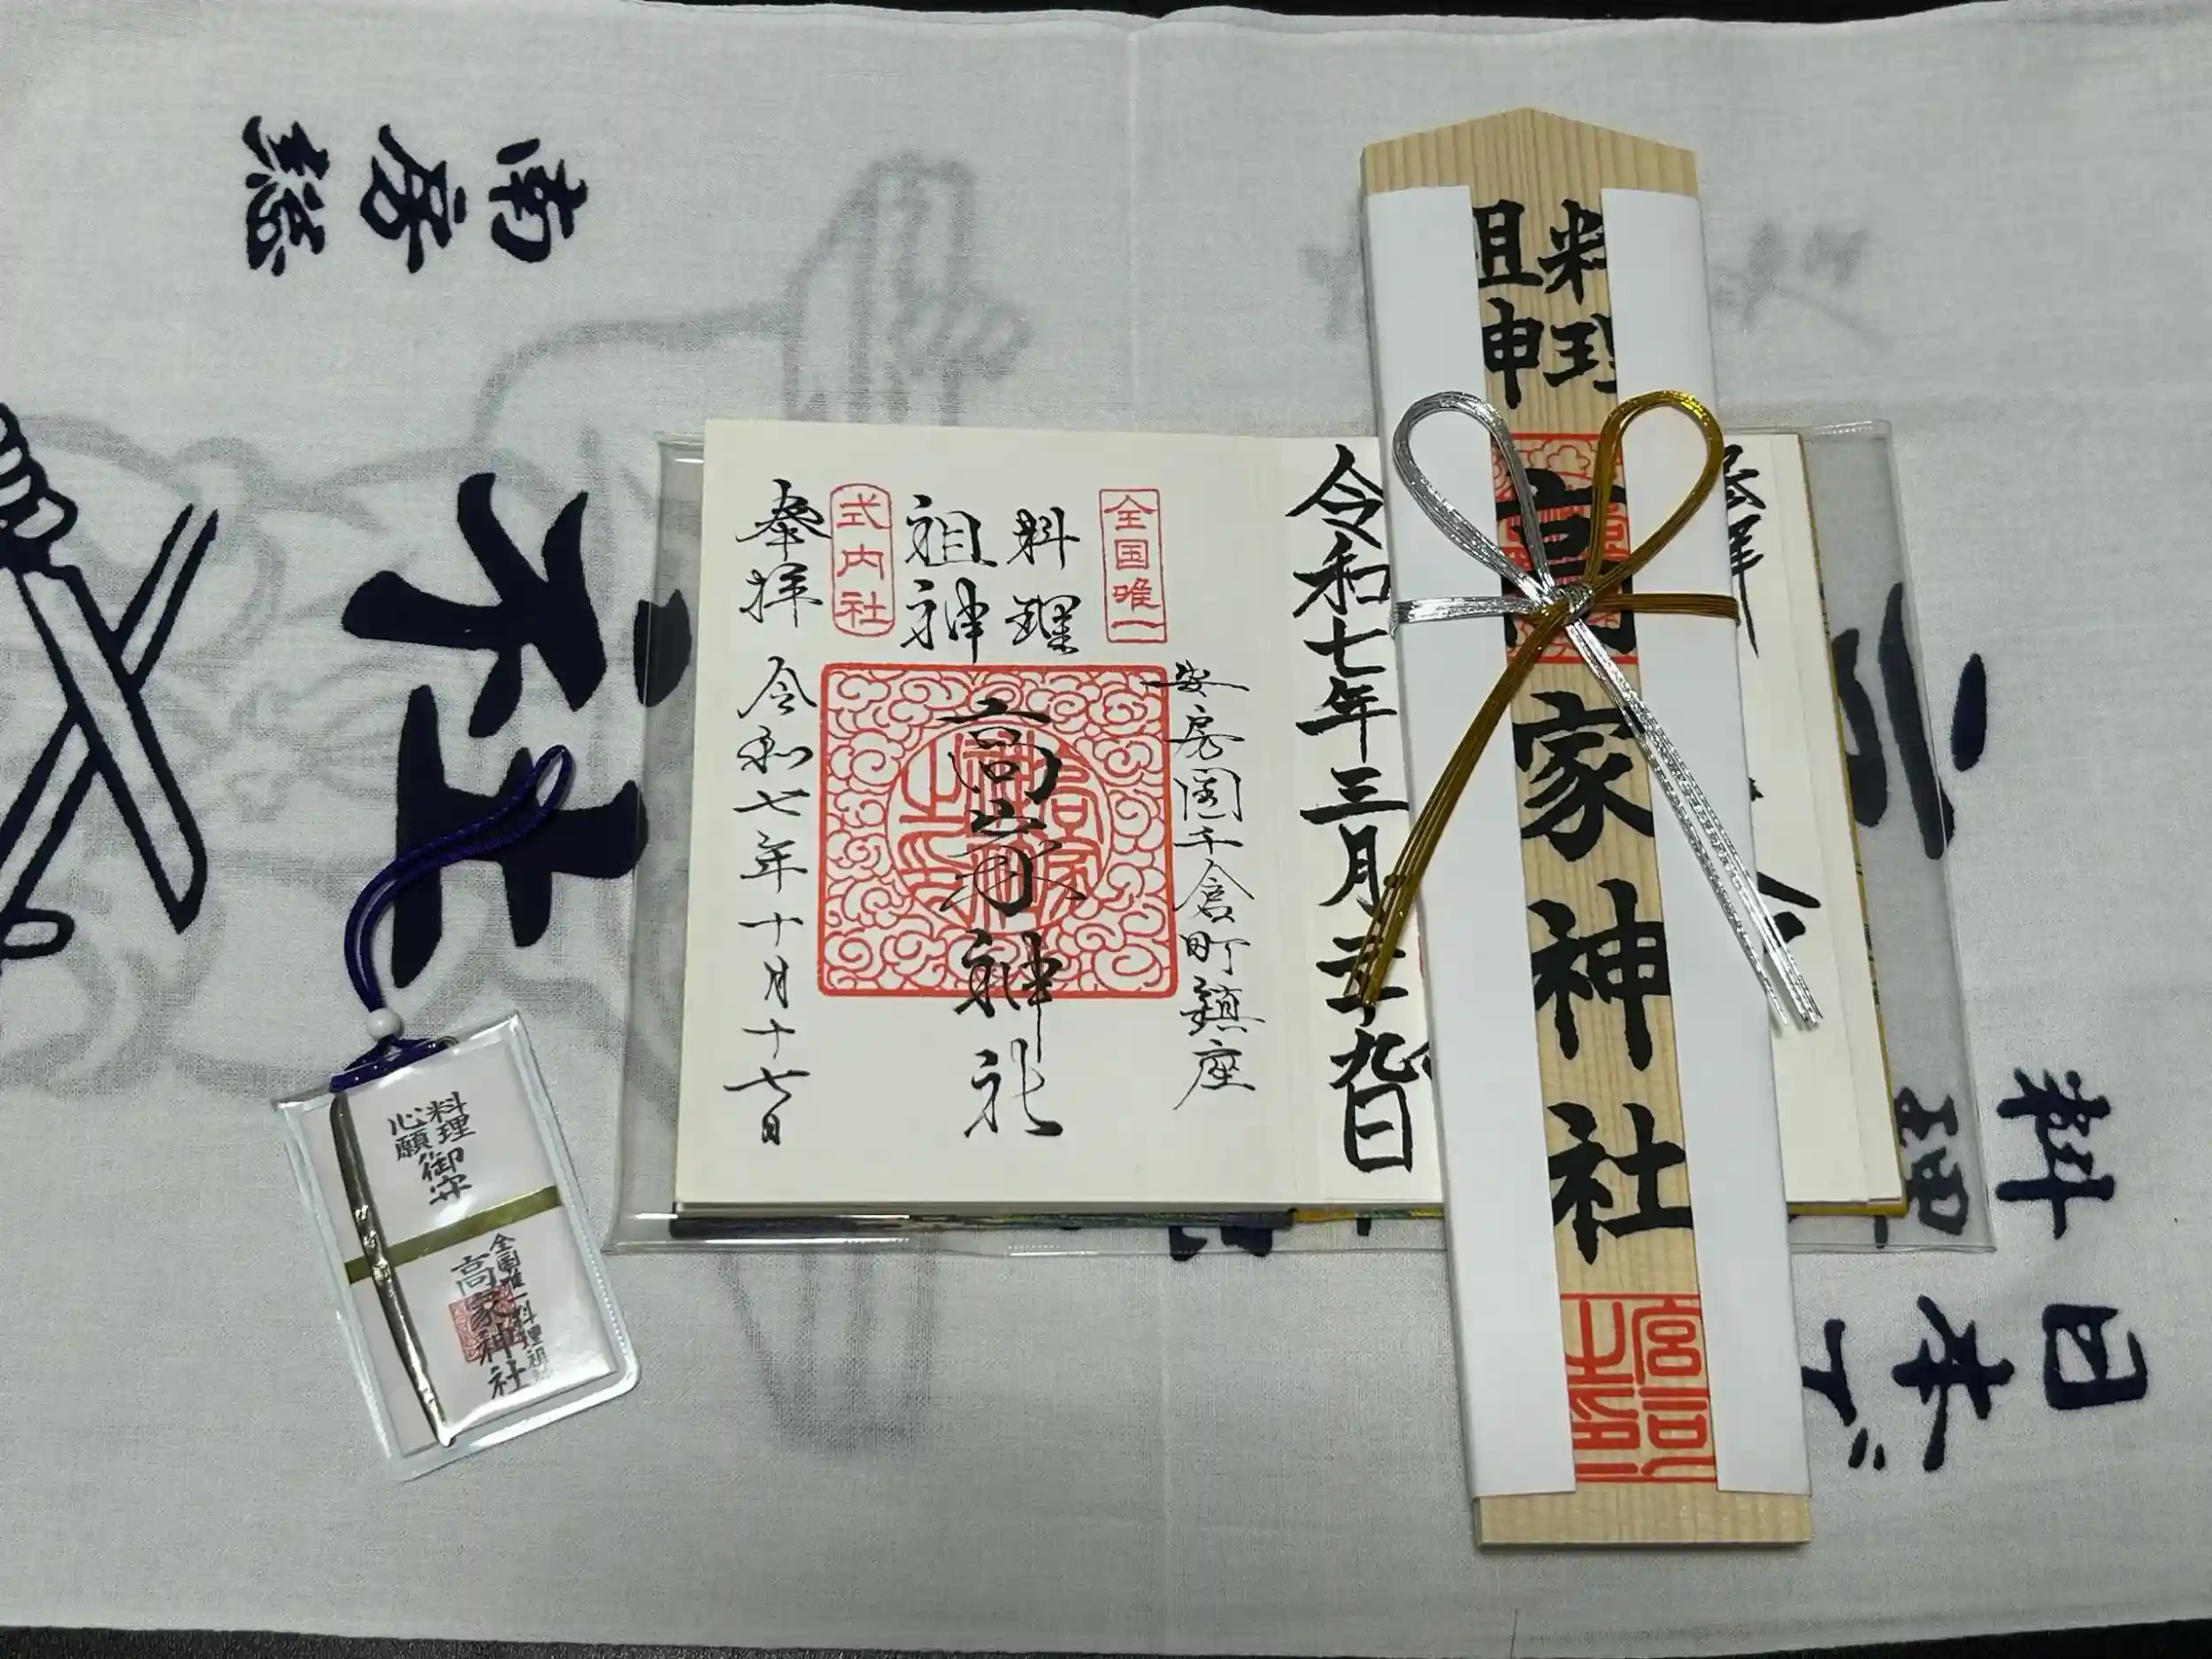 南房総
神社
料理
日本で
全国唯一
安房国千倉町鎮座
料理
祖神
高家神社
式内社
奉拝
令和七年十月十七日
令和七年三月二十九日
料理
祖神
高家神社
料理
心願
御守
全国唯一料理祖神
高家神社